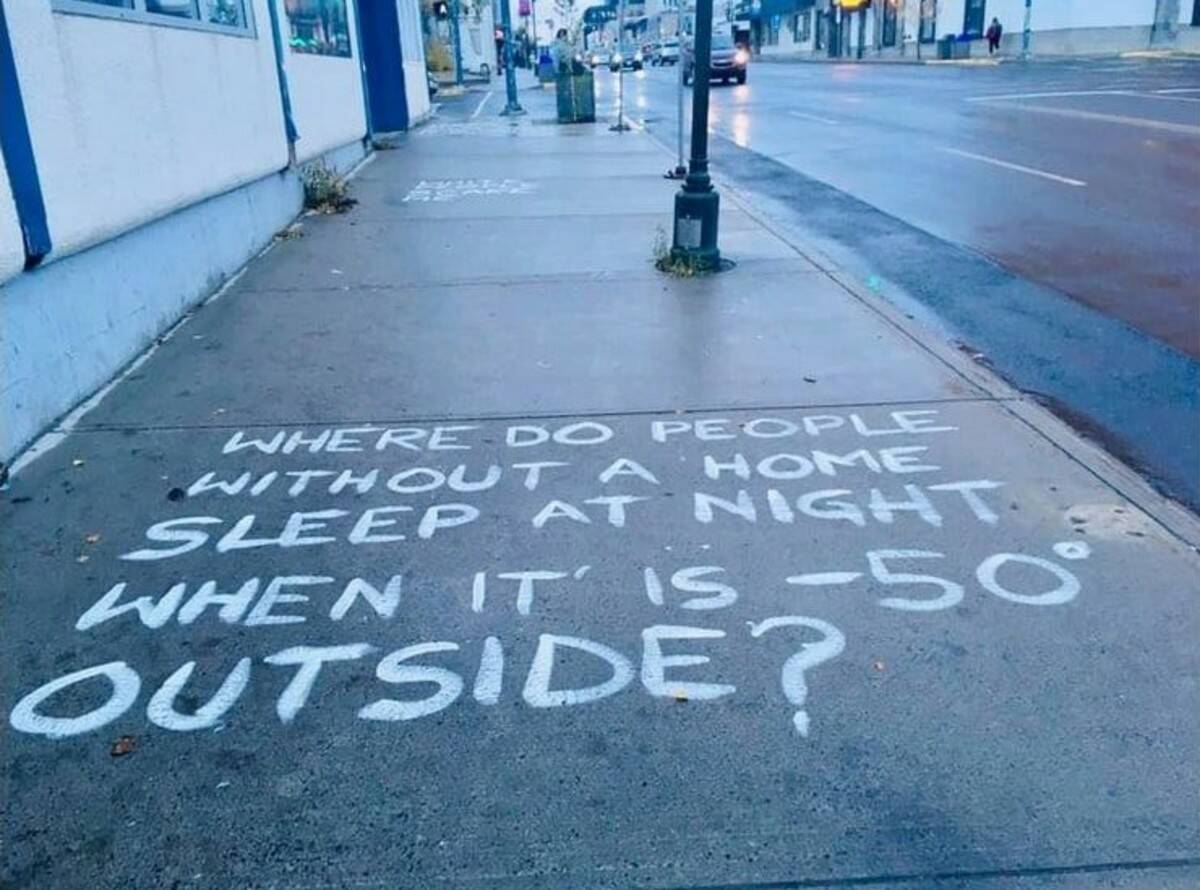 WHERE DO PEOPLE
WITHOUT A HOME
SLEEP AT NIGHT
WHEN IT' IS -50°
OUTSIDE?